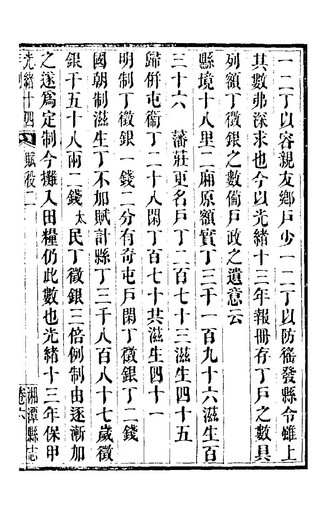 一二丁以容親友鄉戶少一二丁以防徭發縣令雖上
其數弗深求也今以光緒十三年報冊存丁戶之數具
列額丁徵銀之數倘戶政之遺意云
縣境十八里二廂原額實丁三千一百九十六滋生百
三十六　藩莊更名戶丁二百七十三滋生四十五
歸併屯衞丁二十八閑丁百七十共滋生四十一
明制丁徵銀一錢二分有奇屯戶閑丁徵丁二錢
國朝制滋生丁不加賦計縣丁三千八百八十七歲徵
銀千五十八兩二錢太民丁徵銀三倍例制由逐漸加
之遂爲定制今攤入田糧仍此數也光緒十三年保甲
光緒十四　賦役二　卷六　湘潭縣志